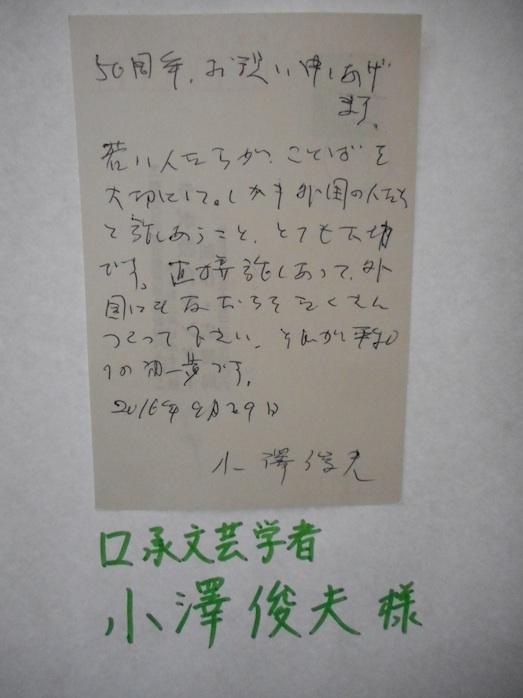 50周年、お祝い申しあげ
ます。
若い人たちが、ことばを
大切にして。しかも外国の人たち
と話しあうこと、とても大切
です。直接話しあって、外
国にも友だちをたくさん
つくって下さい。それが平和
への第一歩です。
2016年9月29日
小澤俊夫
口承文芸学者
小澤俊夫様